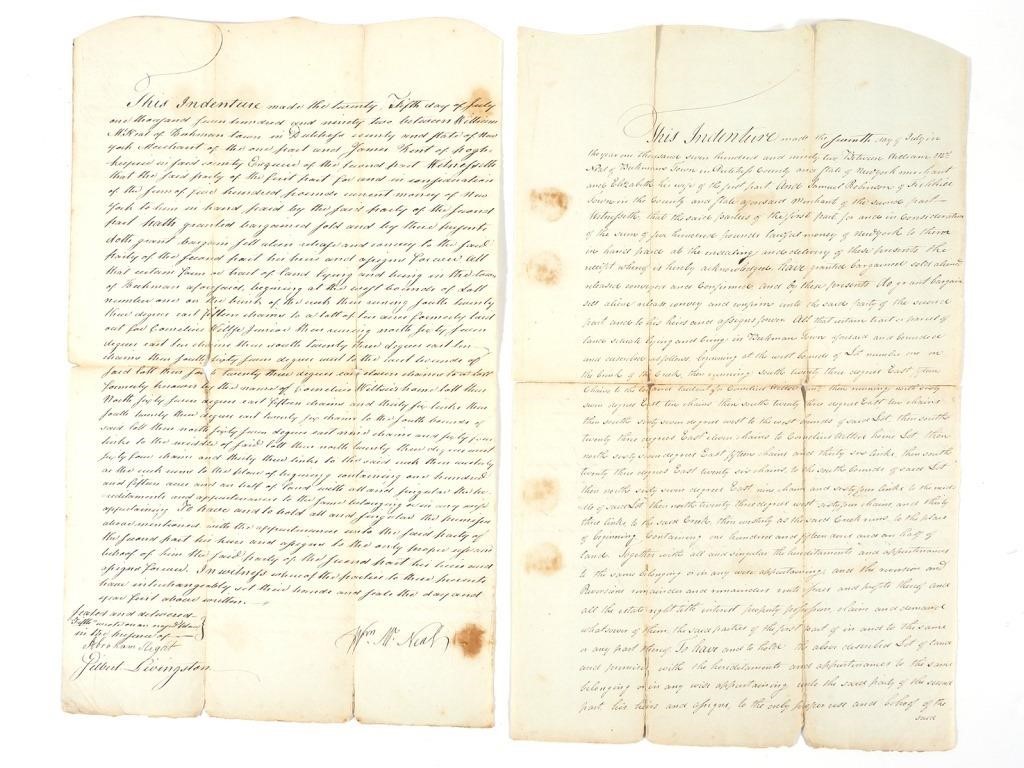 This Indenture made the twenty Fifth day of July
one thousand seven hundred and ninety two between William
McNeal of Beekman town in Dutchess county and state of New
york Merchant of the one part and James Kent of
keepsie in said county Esquire of the second part Witnesseth
that the said party of the first part for and in consideration
of the sum of five hundred pounds current money of New
York to him in hand paid by the said party of the second
part hath granted bargained sold and by these presents
doth grant bargain sell alien release and convey to the said
party of the second part his heirs and assigns forever All
that certain Farm or tract of land lying and being in the town
of Beekman aforesaid, begining at the west bounds of Lott
number one on the bank of the creek then runing south twenty
three degrees east fifteen chains to a lott of ten acres formerly laid
out for Cornelius Junior then runing north sixty seven
degrees east ten chains then south twenty three degrees east ten
chains then south sixty seven degrees west to the west bounds of
said lott then south twenty three degrees east eleven chains to a lott
formerly known by the name of Cornelius home lott then
North sixty seven degrees east fifteen chains and thirty six links then
south twenty three degrees east twenty six chains to the south bounds of
said lott then north sixty seven degrees east nine chains and sixty four
links to the middle of said lott then north twenty three degrees west
sixty four chains and thirty three links to the said creek then westerly
as the creek runs to the place of begining containing one hundred
and fifteen acres and an half of land with all and singular the he-
reditaments and appurtenances to the same belonging or in any wise
appertaining To have and to hold all and singular the premises
above mentioned with the appurtenances unto the said party of
the second part his heirs and assigns to the only proper use and
behoof of him the said party of the second part his heirs and
assigns forever. In witness whereof the parties to these presents
have interchangeably set their hands and seals the day and
year first above written.
sealed and delivered
in the presence of
Abraham
Gilbert Livingston
Wm. Mc. Neal
This Indenture made the seventh day of July in
the year one thousand seven hundred and ninety two Between William Mc.
Neal of Beekmans Town in Dutchess County and State of New York merchant
and Elizabeth his wife of the first part And Samuel Robinson of
Town in the County and State aforesaid Merchant of the second part
Witnesseth, that the said parties of the first part for and in Consideration
of the sum of five hundred pounds lawful money of New York to them
in hand paid at the ensealing and delivery of these presents the
receipt whereof is hereby acknowledged Have granted bargained sold aliened
released conveyed and Confirmed and by these presents do grant bargain
sell alien release convey and confirm unto the said party of the second
part and to his heirs and assigns forever All that certain tract or parcel of
land situate lying and being in Beekman Town aforesaid and bounded
and described as follows, begining at the west bounds of Lot number one on
the bank of the Creek, then running South twenty three degrees East fifteen
Chains to the ten and then running north sixty
seven degrees East ten chains then south twenty three degrees East ten chains
then south sixty seven degrees west to the west bounds of said Lot then south
twenty three degrees East eleven chains to Cornelius home Lot then
north sixty seven degrees East fifteen chains and thirty six links, then south
twenty three degrees East twenty six chains, to the south bounds of said Lot
then north sixty seven degrees East, nine chains and sixty four links to the midd-
le of said lot then north twenty three degrees west sixty four chains and thirty
three links to the said Creek, then westerly as the said Creek runs, to the place
of begining Containing one hundred and fifteen acres and an half of
land. Together with all and singular the hereditaments and appurtenances
to the same belonging or in any wise appertaining, and the reversion and
Reversions remainder and remainders rents issues and profits thereof and
all the estate right title interest property possession, claim and demand
whatsoever of them the said parties of the first part of in and to the same
or any part thereof To have and to hold the above described Lot of land
and premises, with the hereditaments and appurtenances to the same
belonging or in any wise appertaining unto the said party of the second
part his heirs and assigns, to the only proper use and behoof of the
said